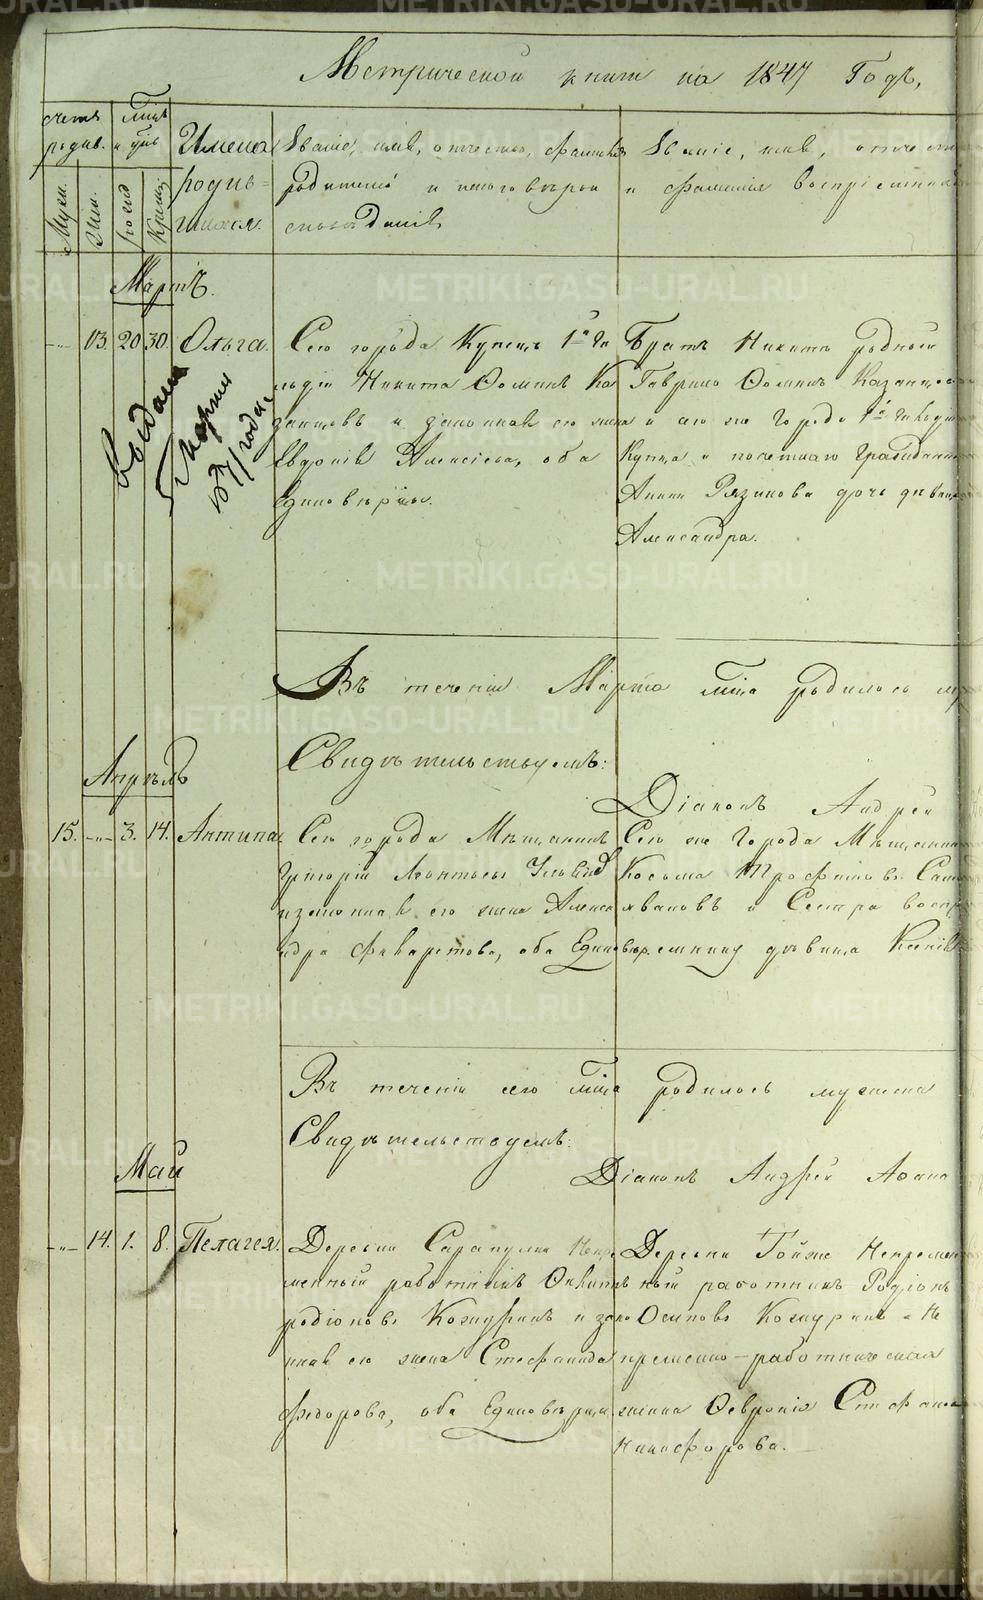 Метрической книги на 1847 Годъ,
счетъ родив.
Муж.
Жен.
рожд
Крещ.
Имена родив-
шихся.
Званіе, имя, отчество, фамилія
родителей и какого вѣроисповѣданія
Званіе, имя, отчест
и фамилія воспріемник
Мартъ.
13. 20 30. Ольга.
Сего города Купецъ 1й Ги
льдіи Никита Ѳоминъ Ка
занцовъ и законная его жена
Евдокія Алексіева, оба
Единовѣрцы.
Братъ Никиты родный
Гаврило Ѳоминъ Казанцо
и сего же Города 1й гильдіи
Купца и почетнаго гражданина
Аники Рязанова дочь дѣвиц
Александра.
Въ теченіи Марта м-ца родилось
Свидѣтельствуемъ:
Діаконъ Андрей
Апрѣль
15. 3. 14. Антипа.
Сего города Мѣщанинъ
Григорій Леонтьевъ
и законная его жена Алекса
ндра Филаретова, оба Единовѣр.
Сего же Города Мѣщанин
Косьма Трофимовъ
и Сестра воспр
емнику дѣвица Ксенія
Въ теченіи сего м-ца родилось мужеска
Свидѣтельствуемъ:
Діаконъ Андрей
Май
14. 1. 8. Пелагея.
Деревни Сарапулки Непре
менный работникъ Никита
родіоновъ Кожуринъ и зако
нная его жена Стефанида
Федорова, оба Единовѣрцы
Деревни Тойже Непремен
ный работникъ Родіонъ
Осиповъ Кожуринъ и Не
пременно-работническая
жена Ѳевронія Стефано
Никифорова.
METRIKI.GASO-URAL.RU